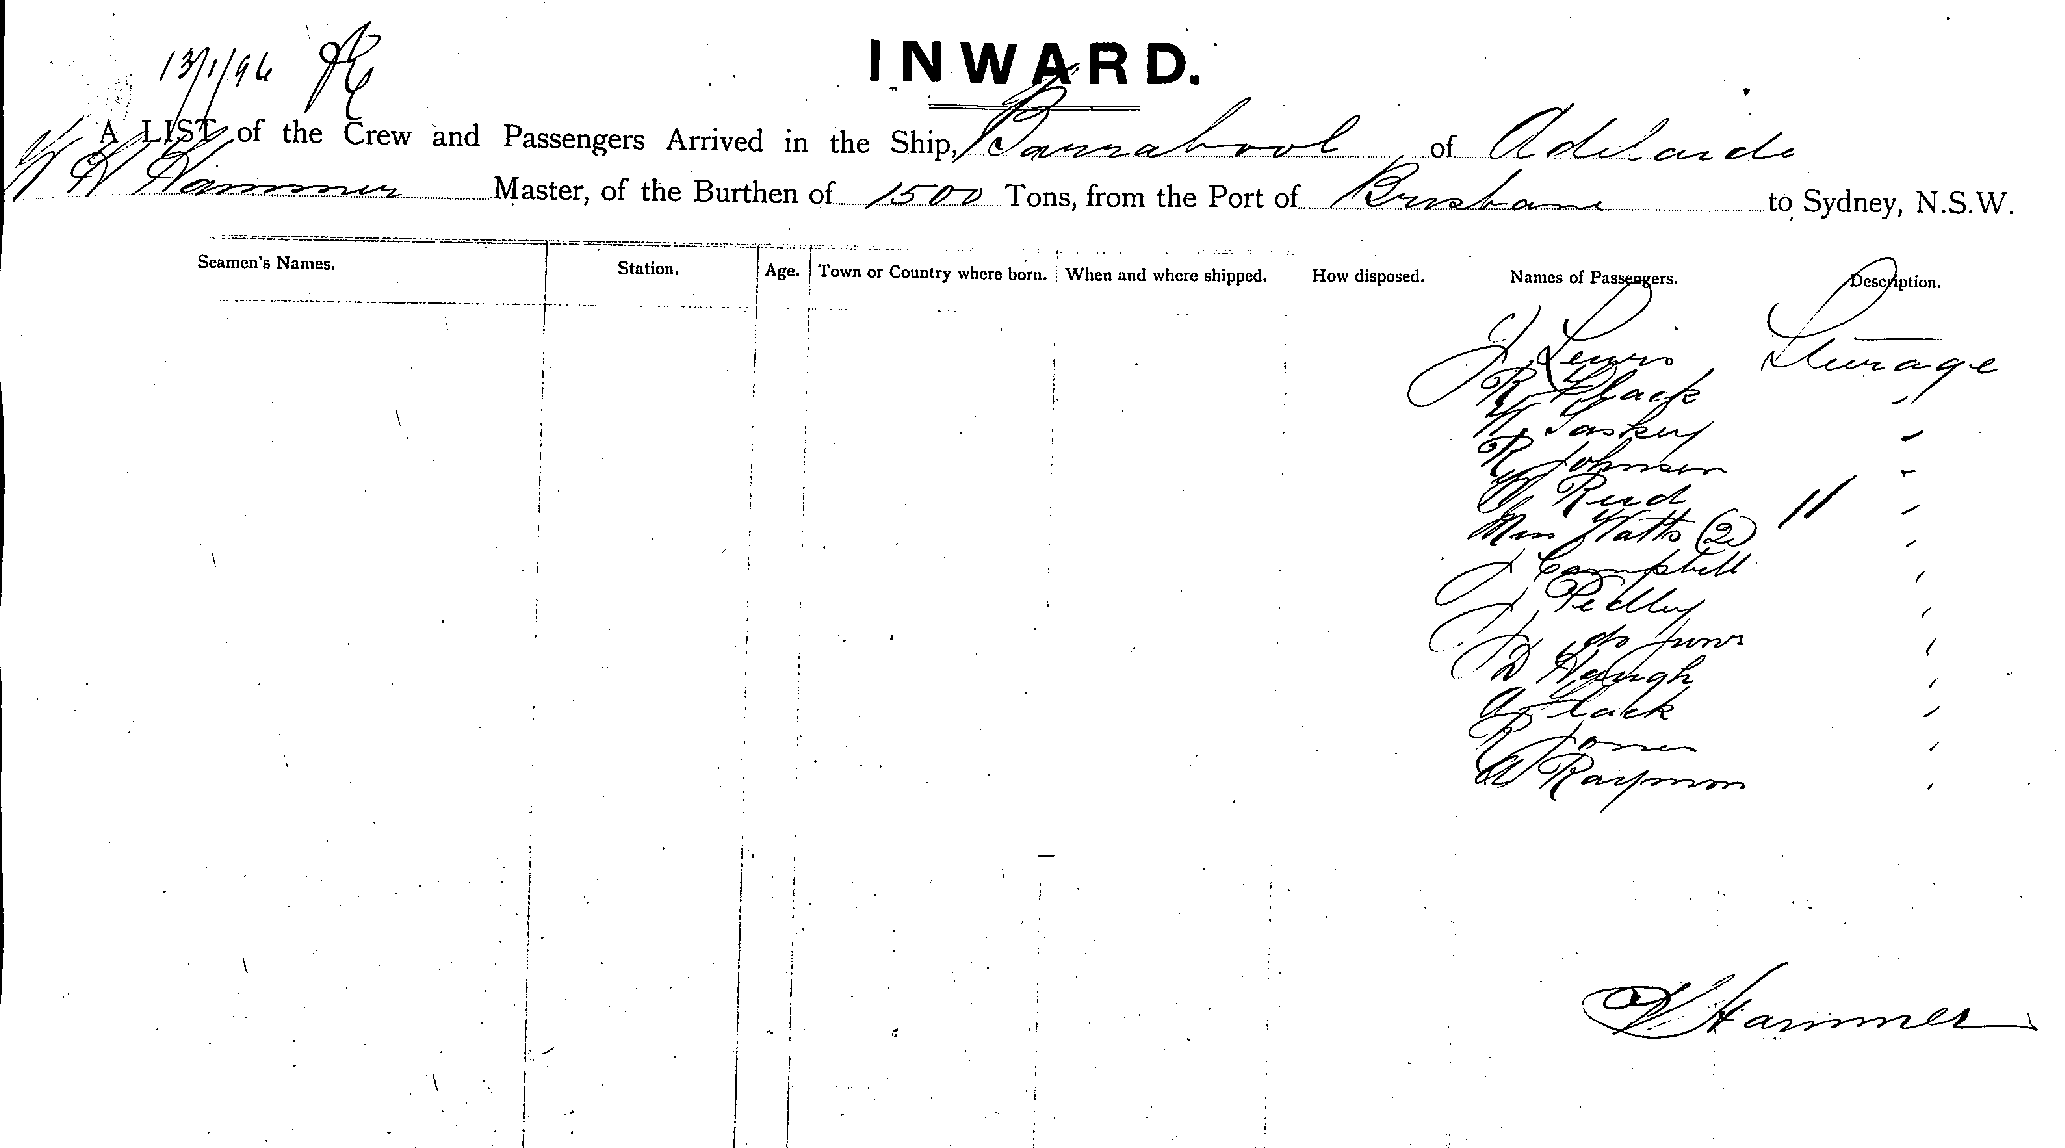 13/1/96
INWARD.
A LIST of the Crew and Passengers Arrived in the Ship, Barrabool of Adelaide
W H Hammer Master, of the Burthen of 1500 Tons, from the Port of Brisbane to Sydney, N.S.W.
Seamen's Names. Station. Age. Town or Country where born. When and where shipped. How disposed. Names of Passengers. Description.
J Lewis Sturage
R Black "
W Taskey "
R Johnson "
W Reid 11 "
Miss Watts (2) "
J Campbell "
J Pedley "
J do junr "
D Haugh "
A Clack "
R Jones "
A Raymon "
W Hammer